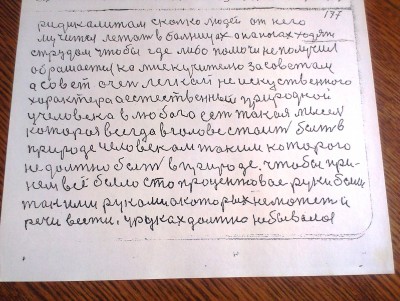 197
радикалитам сколко людей от него
мучится летат в болницах а на ногах ходят
с трудом чтобы где либо помочи не получил
обращается ко мне к учителю за советам
а совет очен легкай не искуственного
характера а естественный природной
у человека в любого ест такая мысля
которая всегда в голове стоит быть в
природе человекам таким которого
не должно быт в природе, чтобы при
нем всё было сто процентовае руки были
такими руками а которых не может и
речи вести, у руках должно небывалоя